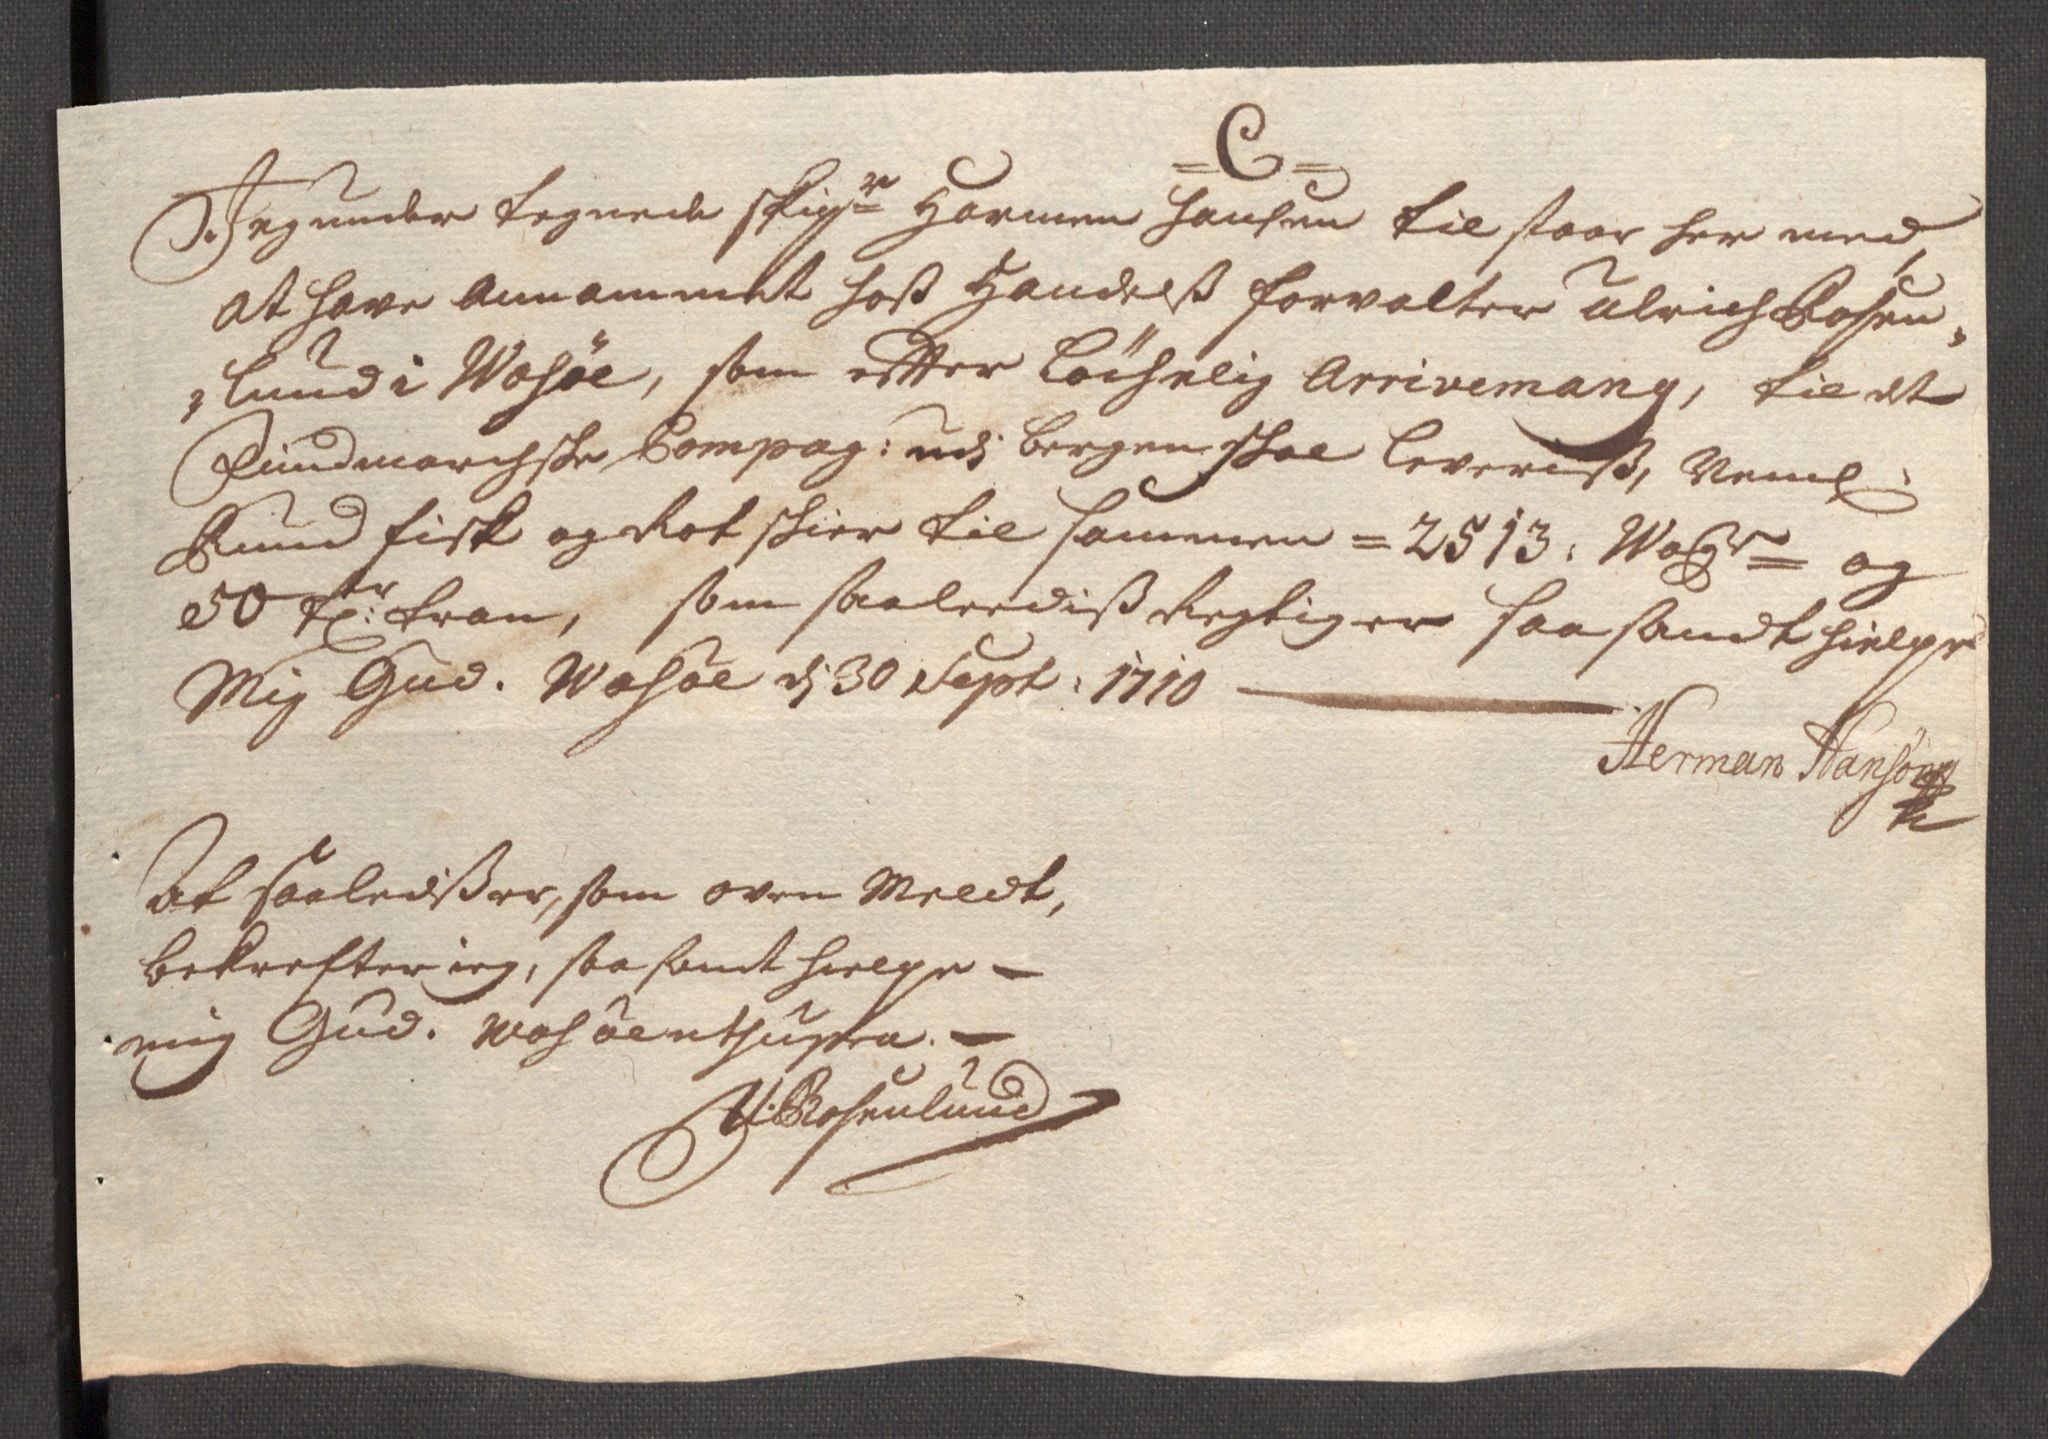 =C=
Jeg under tegnede skipr Harmen Hansen til staar her med,
at have Annammet hoß Handelß forvalter Ulrich Rosen„
„lund i Wosøe, som efter løchelig Arrivemang, til det
Findmarchske Compag: udj bergen skal leveriß, Neml:
Rund fisk og Rotskier til sammen = 2513: Wogr = og
50 tr: tran, som saalediß Rigtig er saa sandt hielpe
Mig Gud. Wosøe dj 30 Sept: 1710
Herman Hansøn
At saaledißer, som oven Meldt,
bekrefter ieg, saa sandt hielpe
mig Gud. Wosøe ut supra.
U: Rosenlund